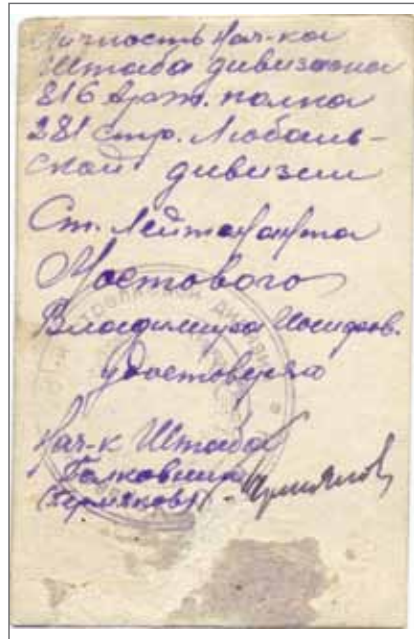 Личность Нач-ка
Штаба дивизиона
816 Арт. полка
281 стр. Любань-
ской дивизии
Ст. Лейтенанта
Мостового
Владимира Иосифов.
удостоверяю
Нач-к Штаба
Полковник